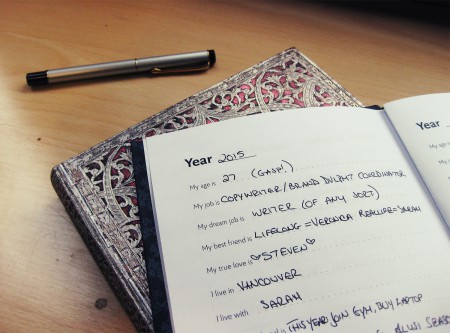 Year 2015
My age is 27 (GASH!)
My job is COPYWRITER/BRAND DVLPMT COORDINATOR
My dream job is WRITER (OF ANY SORT)
My best friend is LIFELONG = VERONICA REALLIFE = SARAH
My true love is ♡STEVEN♡
I live in VANCOUVER
I live with SARAH
is THIS YEAR JOIN GYM, BUY LAPTOP
Year
My age is
My job